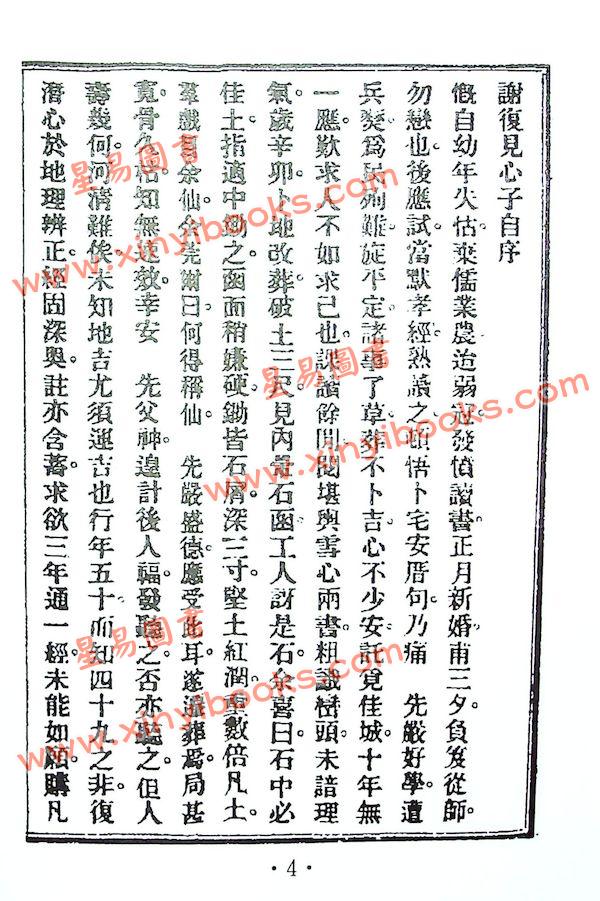 謝復見心子自序
慨自幼年失怙棄儒業農迨弱冠發憤讀書正月新婚甫三夕負笈從師。
勿戀也後應試當默孝經熟讀之頓悟卜宅安厝句乃痛　先嚴好學遭
兵燹為民殉難旋平定諸事了草葬不卜吉心不少安託覓佳城十年無
一應歎求人不如求己也課讀餘閒閱堪輿雪心兩書粗識巒頭未諳理
氣。歲辛卯卜地改葬破土三尺見內石函工人訝是石余喜曰石中必
佳土。指適中鋤之函面稍嫌硬鋤皆石屑深三寸堅土紅潤重數倍凡土。
羣戲余仙余莞爾曰何得稱仙　先嚴盛德應受此耳遂遷葬為局甚
寬骨久枯知無速效幸安　先父神遑計後人福。發聽之否亦聽之但人
壽幾何。河清難俟未知地吉尤須運吉也行年五十而知四十九之非復
潛心於地理辨正經固深奧註亦含蓄求欲三年通一經未能如願購凡
·4·
星易圖書
www.xinyibooks.com
星易圖書
www.xinyibooks.com
星易圖書
www.xinyibooks.com